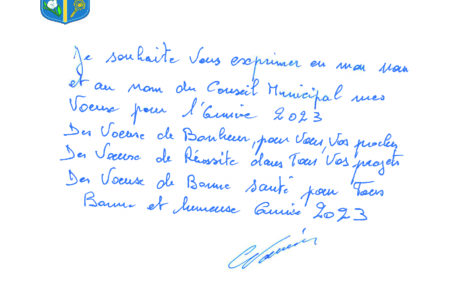 Je souhaite Vous exprimer en mon nom
et au nom du Conseil Municipal mes
Voeux pour l'Année 2023
Des Voeux de Bonheur, pour Vous, Vos proches
Des Voeux de Réussite dans Tous Vos projets
Des Voeux de Bonne santé pour Tous
Bonne et heureuse Année 2023